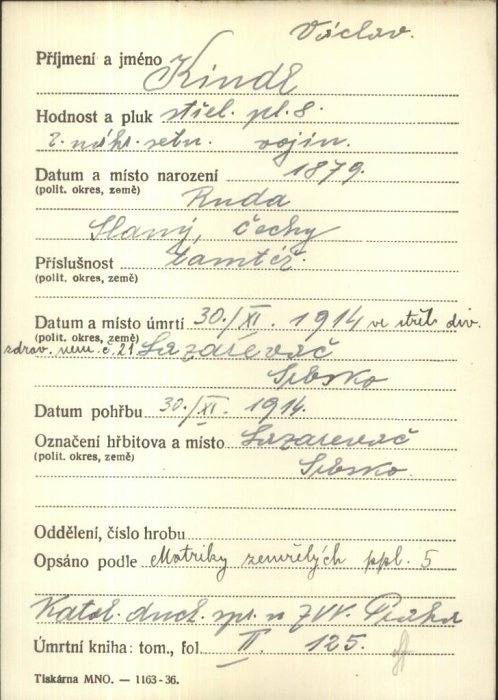 Václav.
Příjmení a jméno Kindl
Hodnost a pluk střel. pl. 8.
2. náhr. setn. vojín.
Datum a místo narození 1879.
(polit. okres, země) Ruda
Slaný, Čechy
Příslušnost tamtéž.
(polit. okres, země)
Datum a místo úmrtí 30./XI. 1914 ve střel. div.
(polit. okres, země)
zdrav. nem. č. 21 Lazarevač
Srbsko
Datum pohřbu 30./XI. 1914.
Označení hřbitova a místo Lazarevač
(polit. okres, země) Srbsko.
Oddělení, číslo hrobu
Opsáno podle Matriky zemřelých ppl. 5
Katol. duch. spr. u ZVV. Praha
Úmrtní kniha: tom., fol. II. 125.
Tiskárna MNO. — 1163-36.